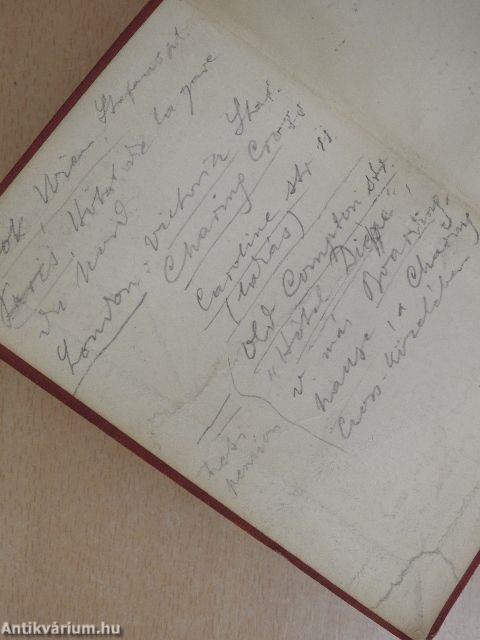 Wien, Stefans
Paris, Hôtel de la gare
du Nord
London: Victoria Stat.
Charing Cross
Caroline str 11
(ludás)
Old Compton str.
"Hôtel Dieppe",
v. más Boarding
house, a Charing
Cross közelében
pension
Antikvárium.hu